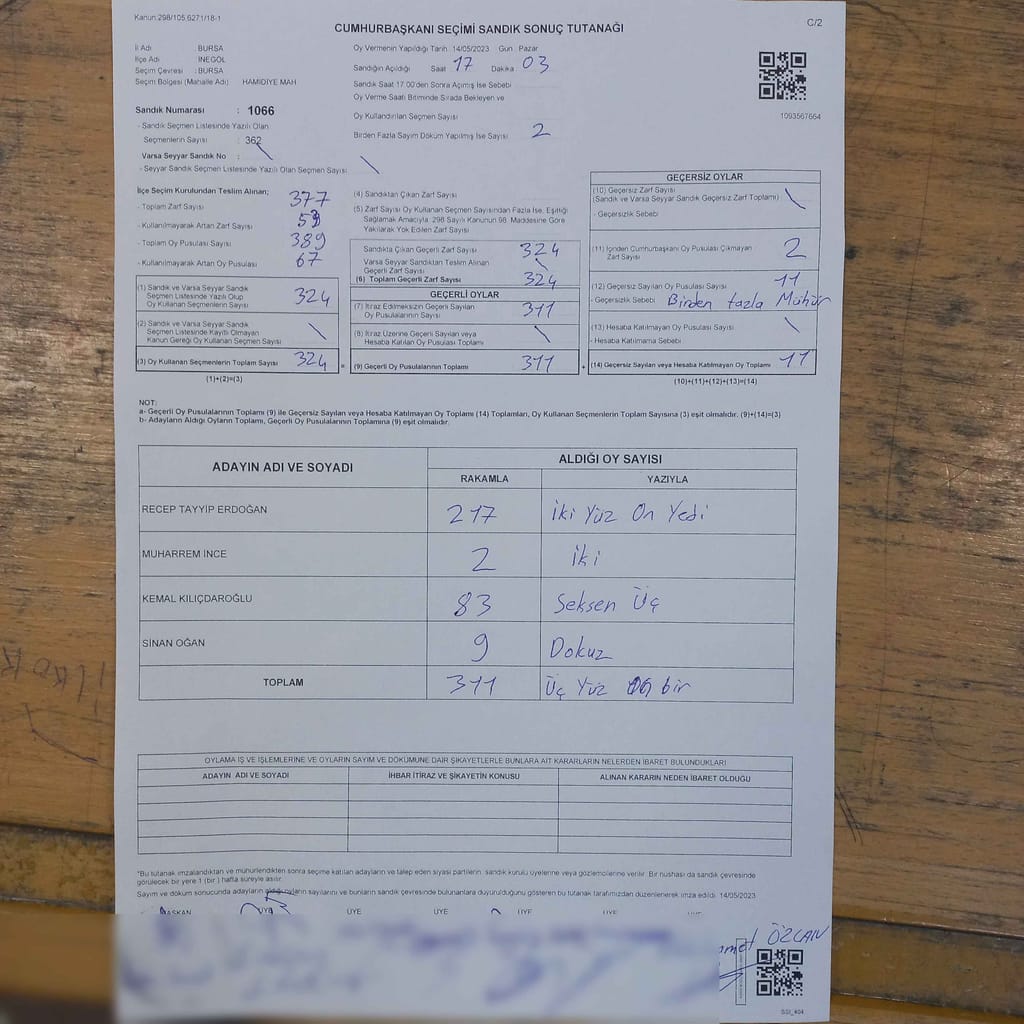 Kanun.298/105,6271/18-1
C/2
CUMHURBAŞKANI SEÇİMİ SANDIK SONUÇ TUTANAĞI
İl Adı : BURSA
İlçe Adı : İNEGÖL
Seçim Çevresi : BURSA
Seçim Bölgesi (Mahalle Adı) HAMİDİYE MAH
Oy Vermenin Yapıldığı Tarih : 14/05/2023 Gün : Pazar
Sandığın Açıldığı Saat 17 Dakika 03
Sandık Saat 17.00'den Sonra Açılmış İse Sebebi
Oy Verme Saati Bitiminde Sırada Bekleyen ve
Oy Kullandırılan Seçmen Sayısı
Birden Fazla Sayım Döküm Yapılmış İse Sayısı 2
1093567664
Sandık Numarası : 1066
- Sandık Seçmen Listesinde Yazılı Olan
Seçmenlerin Sayısı : 362
Varsa Seyyar Sandık No :
- Seyyar Sandık Seçmen Listesinde Yazılı Olan Seçmen Sayısı
İlçe Seçim Kurulundan Teslim Alınan;
- Toplam Zarf Sayısı 377
- Kullanılmayarak Artan Zarf Sayısı 53
- Toplam Oy Pusulası Sayısı 389
- Kullanılmayarak Artan Oy Pusulası 67
(1) Sandık ve Varsa Seyyar Sandık
Seçmen Listesinde Yazılı Olup
Oy Kullanan Seçmenlerin Sayısı 324
(2) Sandık ve Varsa Seyyar Sandık
Seçmen Listesinde Kayıtlı Olmayan
Kanun Gereği Oy Kullanan Seçmenlerin Sayısı
(3) Oy Kullanan Seçmenlerin Toplam Sayısı 324
(1)+(2)=(3)
(4) Sandıktan Çıkan Zarf Sayısı
(5) Zarf Sayısı Oy Kullanan Seçmen Sayısından Fazla İse, Eşitliği
Sağlamak Amacıyla 298 Sayılı Kanunun 98. Maddesine Göre
Yakılarak Yok Edilen Zarf Sayısı
Sandıkta Çıkan Geçerli Zarf Sayısı 324
Varsa Seyyar Sandıktan Teslim Alınan
Geçerli Zarf Sayısı
(6) Toplam Geçerli Zarf Sayısı 324
GEÇERLİ OYLAR
(7) İtiraz Edilmeksizin Geçerli Sayılan
Oy Pusulasının Sayısı 311
(8) İtiraz Üzerine Geçerli Sayılan veya
Hesaba Katılan Oy Pusulası Toplamı
= (9) Geçerli Oy Pusulalarının Toplamı 311
GEÇERSİZ OYLAR
(10) Geçersiz Zarf Sayısı
(Sandık ve Varsa Seyyar Sandık Geçersiz Zarf Toplamı)
- Geçersizlik Sebebi
(11) İçinden Cumhurbaşkanı Oy Pusulası Çıkmayan
Zarf Sayısı 2
(12) Geçersiz Sayılan Oy Pusulası Sayısı 11
- Geçersizlik Sebebi Birden fazla Mühür
(13) Hesaba Katılmayan Oy Pusulası Sayısı
- Hesaba Katılmama Sebebi
+ (14) Geçersiz Sayılan veya Hesaba Katılmayan Oy Toplamı 11
(10)+(11)+(12)+(13)=(14)
NOT:
a- Geçerli Oy Pusulalarının Toplamı (9) ile Geçersiz Sayılan veya Hesaba Katılmayan Oy Toplamı (14) Toplamları, Oy Kullanan Seçmenlerin Toplam Sayısına (3) eşit olmalıdır. (9)+(14)=(3)
b- Adayların Aldığı Oyların Toplamı, Geçerli Oy Pusulalarının Toplamına (9) eşit olmalıdır.
ADAYIN ADI VE SOYADI
ALDIĞI OY SAYISI
RAKAMLA YAZIYLA
RECEP TAYYİP ERDOĞAN 217 İki Yüz On Yedi
MUHARREM İNCE 2 İki
KEMAL KILIÇDAROĞLU 83 Seksen Üç
SİNAN OĞAN 9 Dokuz
TOPLAM 311 Üç Yüz On bir
OYLAMA İŞ VE İŞLEMLERİNE VE OYLARIN SAYIM VE DÖKÜMÜNE DAİR ŞİKAYETLERLE BUNLARA AİT KARARLARIN NELERDEN İBARET BULUNDUKLARI
ADAYIN ADI VE SOYADI İHBAR İTİRAZ VE ŞİKAYETİN KONUSU ALINAN KARARIN NEDEN İBARET OLDUĞU
*Bu tutanak imzalandıktan ve mühürlendikten sonra seçime katılan adayların ve talep eden siyasi partilerin sandık kurulu üyelerine veya gözlemcilerine verilir. Bir nüshası da sandık çevresinde
görülecek bir yere 1 (bir) hafta süreyle asılır.
Sayım ve döküm sonucunda adayların aldığı oyların sayılarını ve bunların sandık çevresinde bulunanlara duyurulduğunu gösteren bu tutanak tarafımızdan düzenlenerek imza edildi. 14/05/2023
BAŞKAN ÜYE ÜYE ÜYE ÜYE ÜYE
ÖZCAN